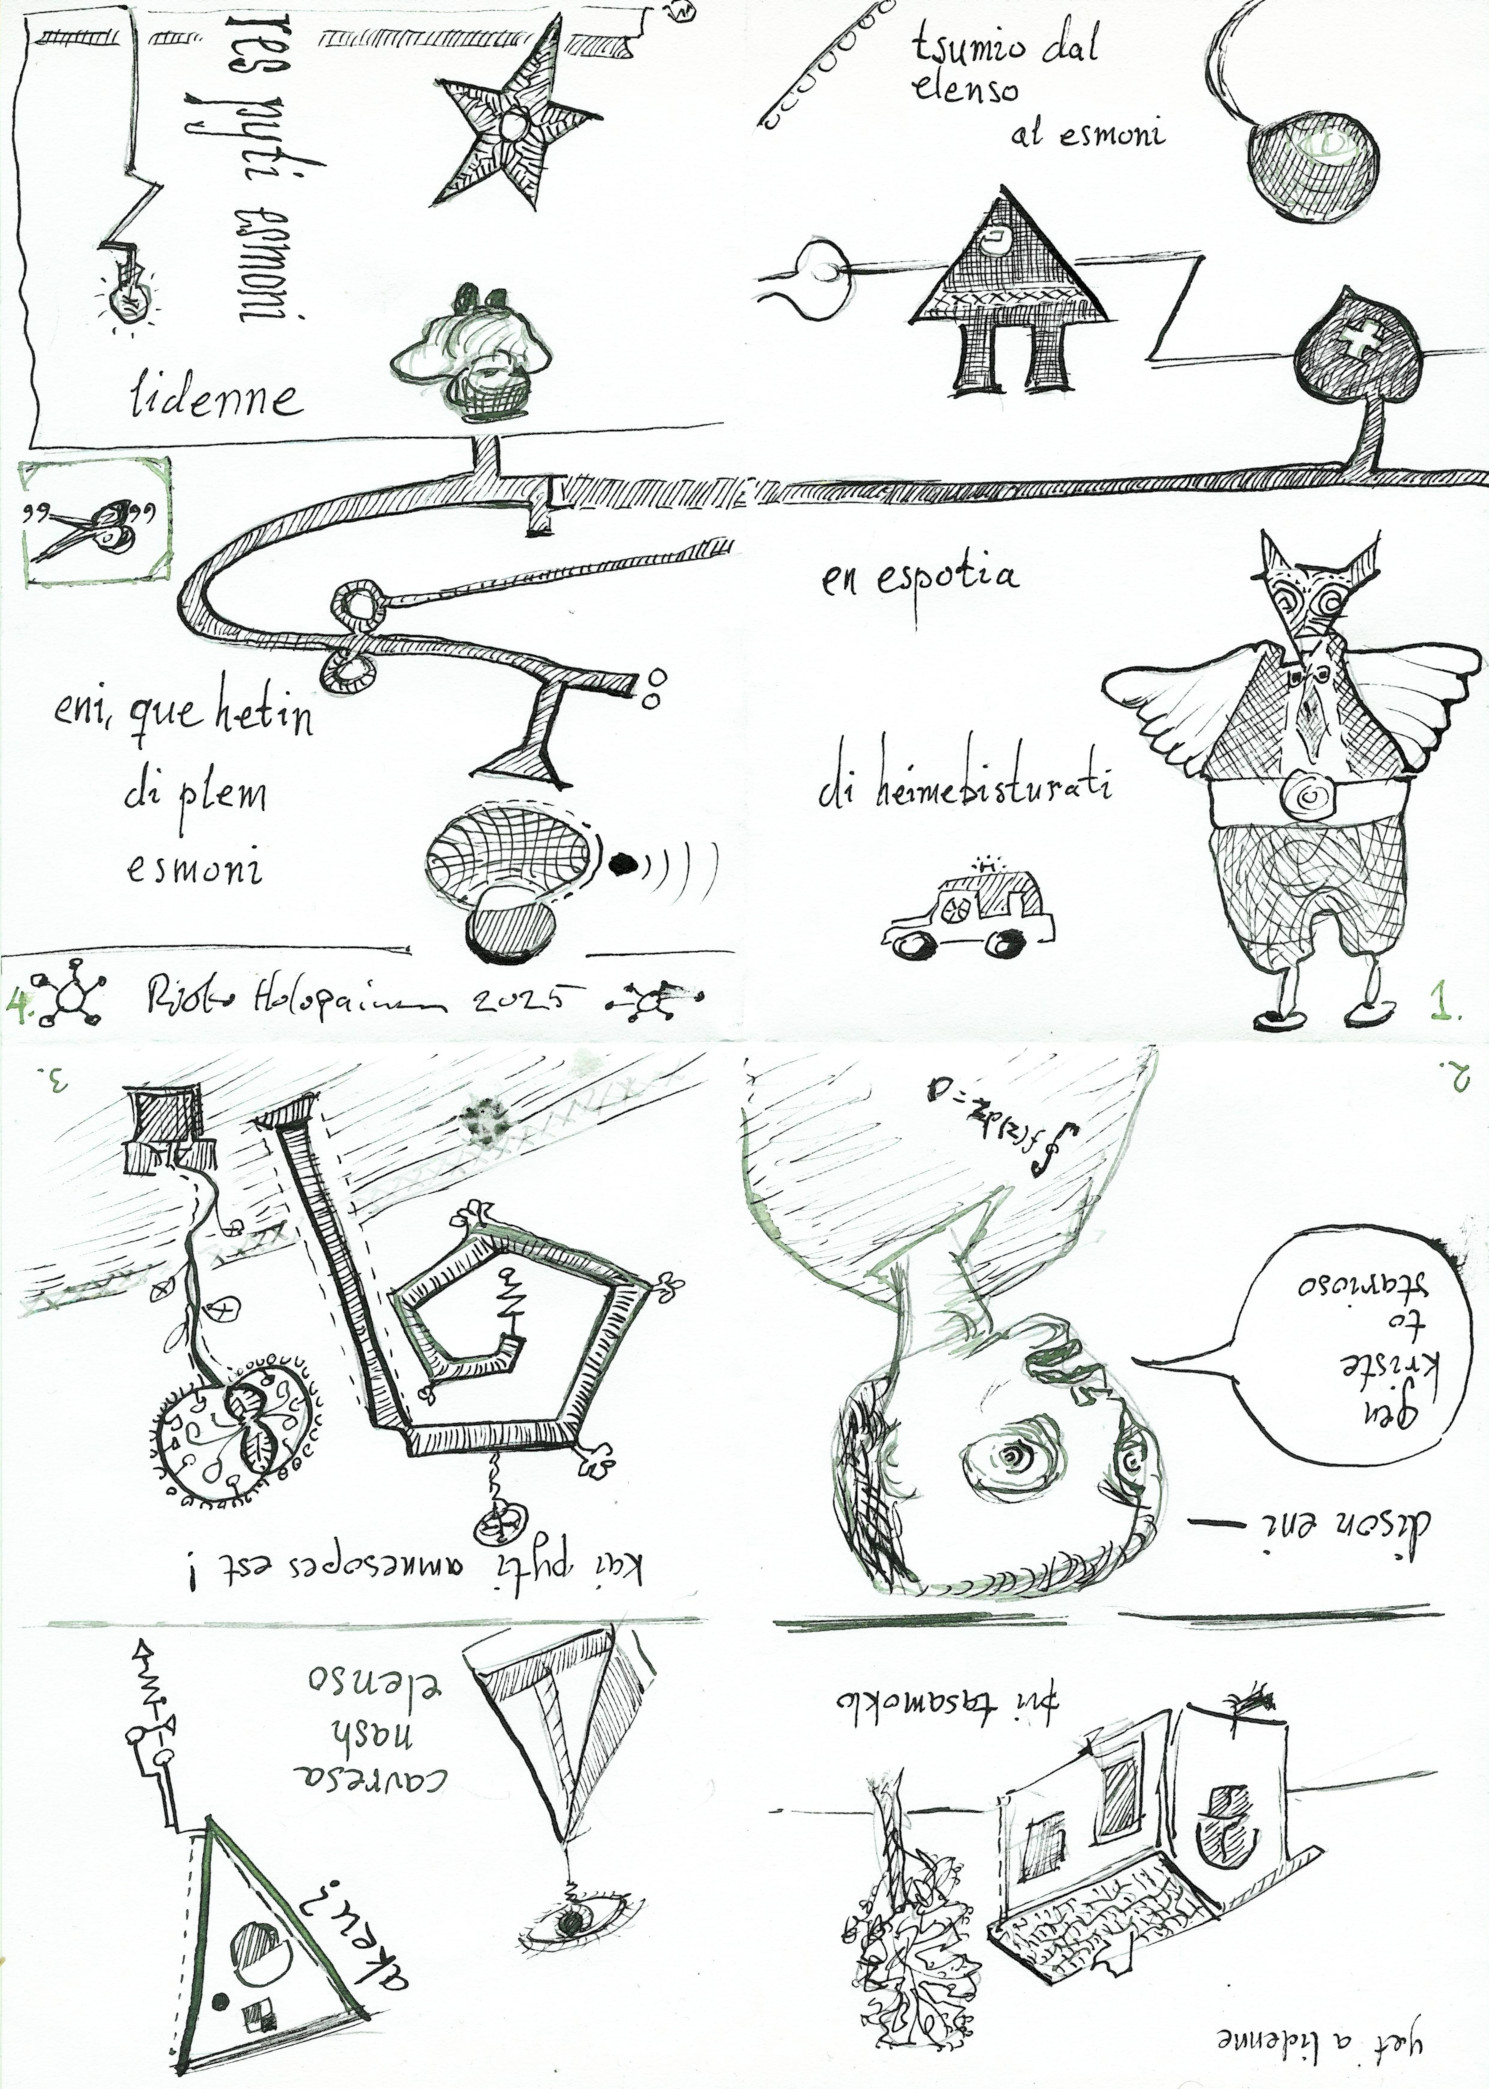 res pyti esmoni
lidenne
tsumio dal
elenso
al esmoni
en espotia
di heimebisturati
1.
2.
∮ f(z)dz = 0
gen
kriste
to
starioso
dison eni —
pri tasamoklo
yet a lidenne
3.
kai pyti amnesopes est !
cavresa
nash
elenso
akeu?
eni, que hetin
di plem
esmoni
4.
Risto Holopainen 2025